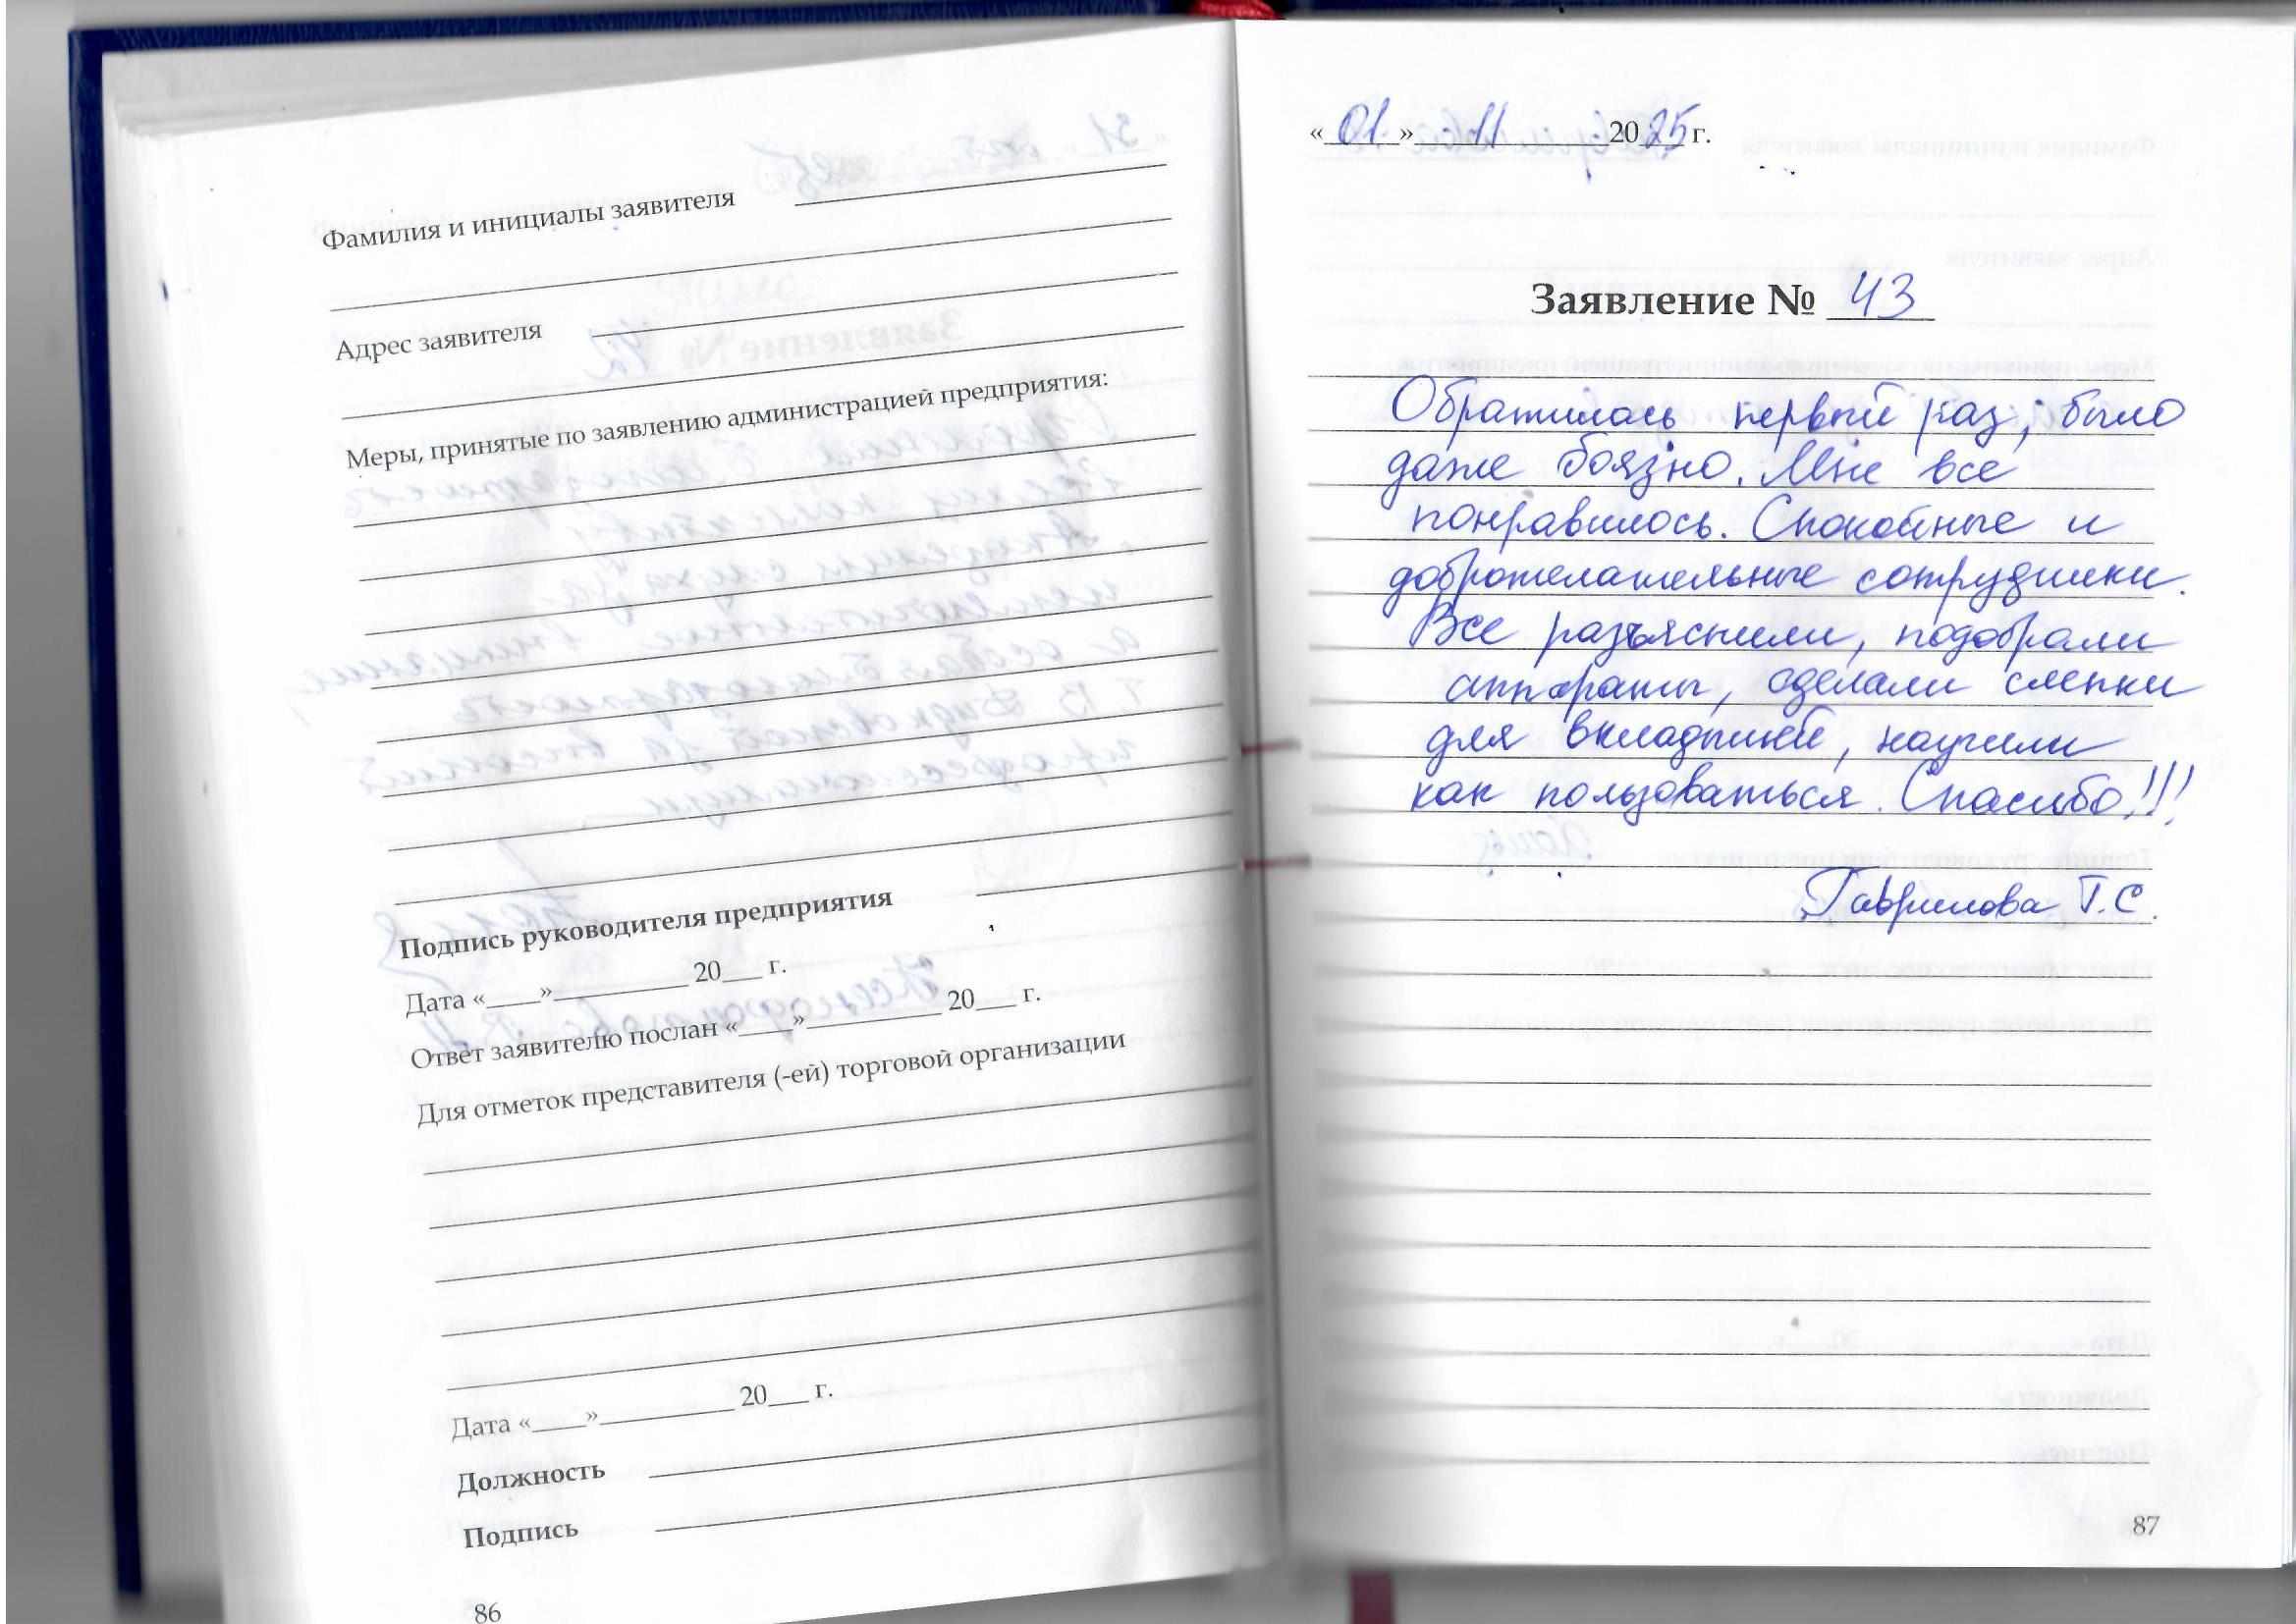 Фамилия и инициалы заявителя
Адрес заявителя
Меры, принятые по заявлению администрацией предприятия:
Подпись руководителя предприятия
Дата «____»__________ 20___ г.
Ответ заявителю послан «____»__________ 20___ г.
Для отметок представителя (-ей) торговой организации
Дата «____»__________ 20___ г.
Должность
Подпись
86
«01» 11 2025 г.
Заявление № 43
Обратилась первый раз, было
даже боязно. Мне все
понравилось. Спокойные и
доброжелательные сотрудники.
Все разъяснили, подобрали
аппараты, сделали слепки
для вкладышей, научили
как пользоваться. Спасибо!!!
Гаврилова Т.С.
87